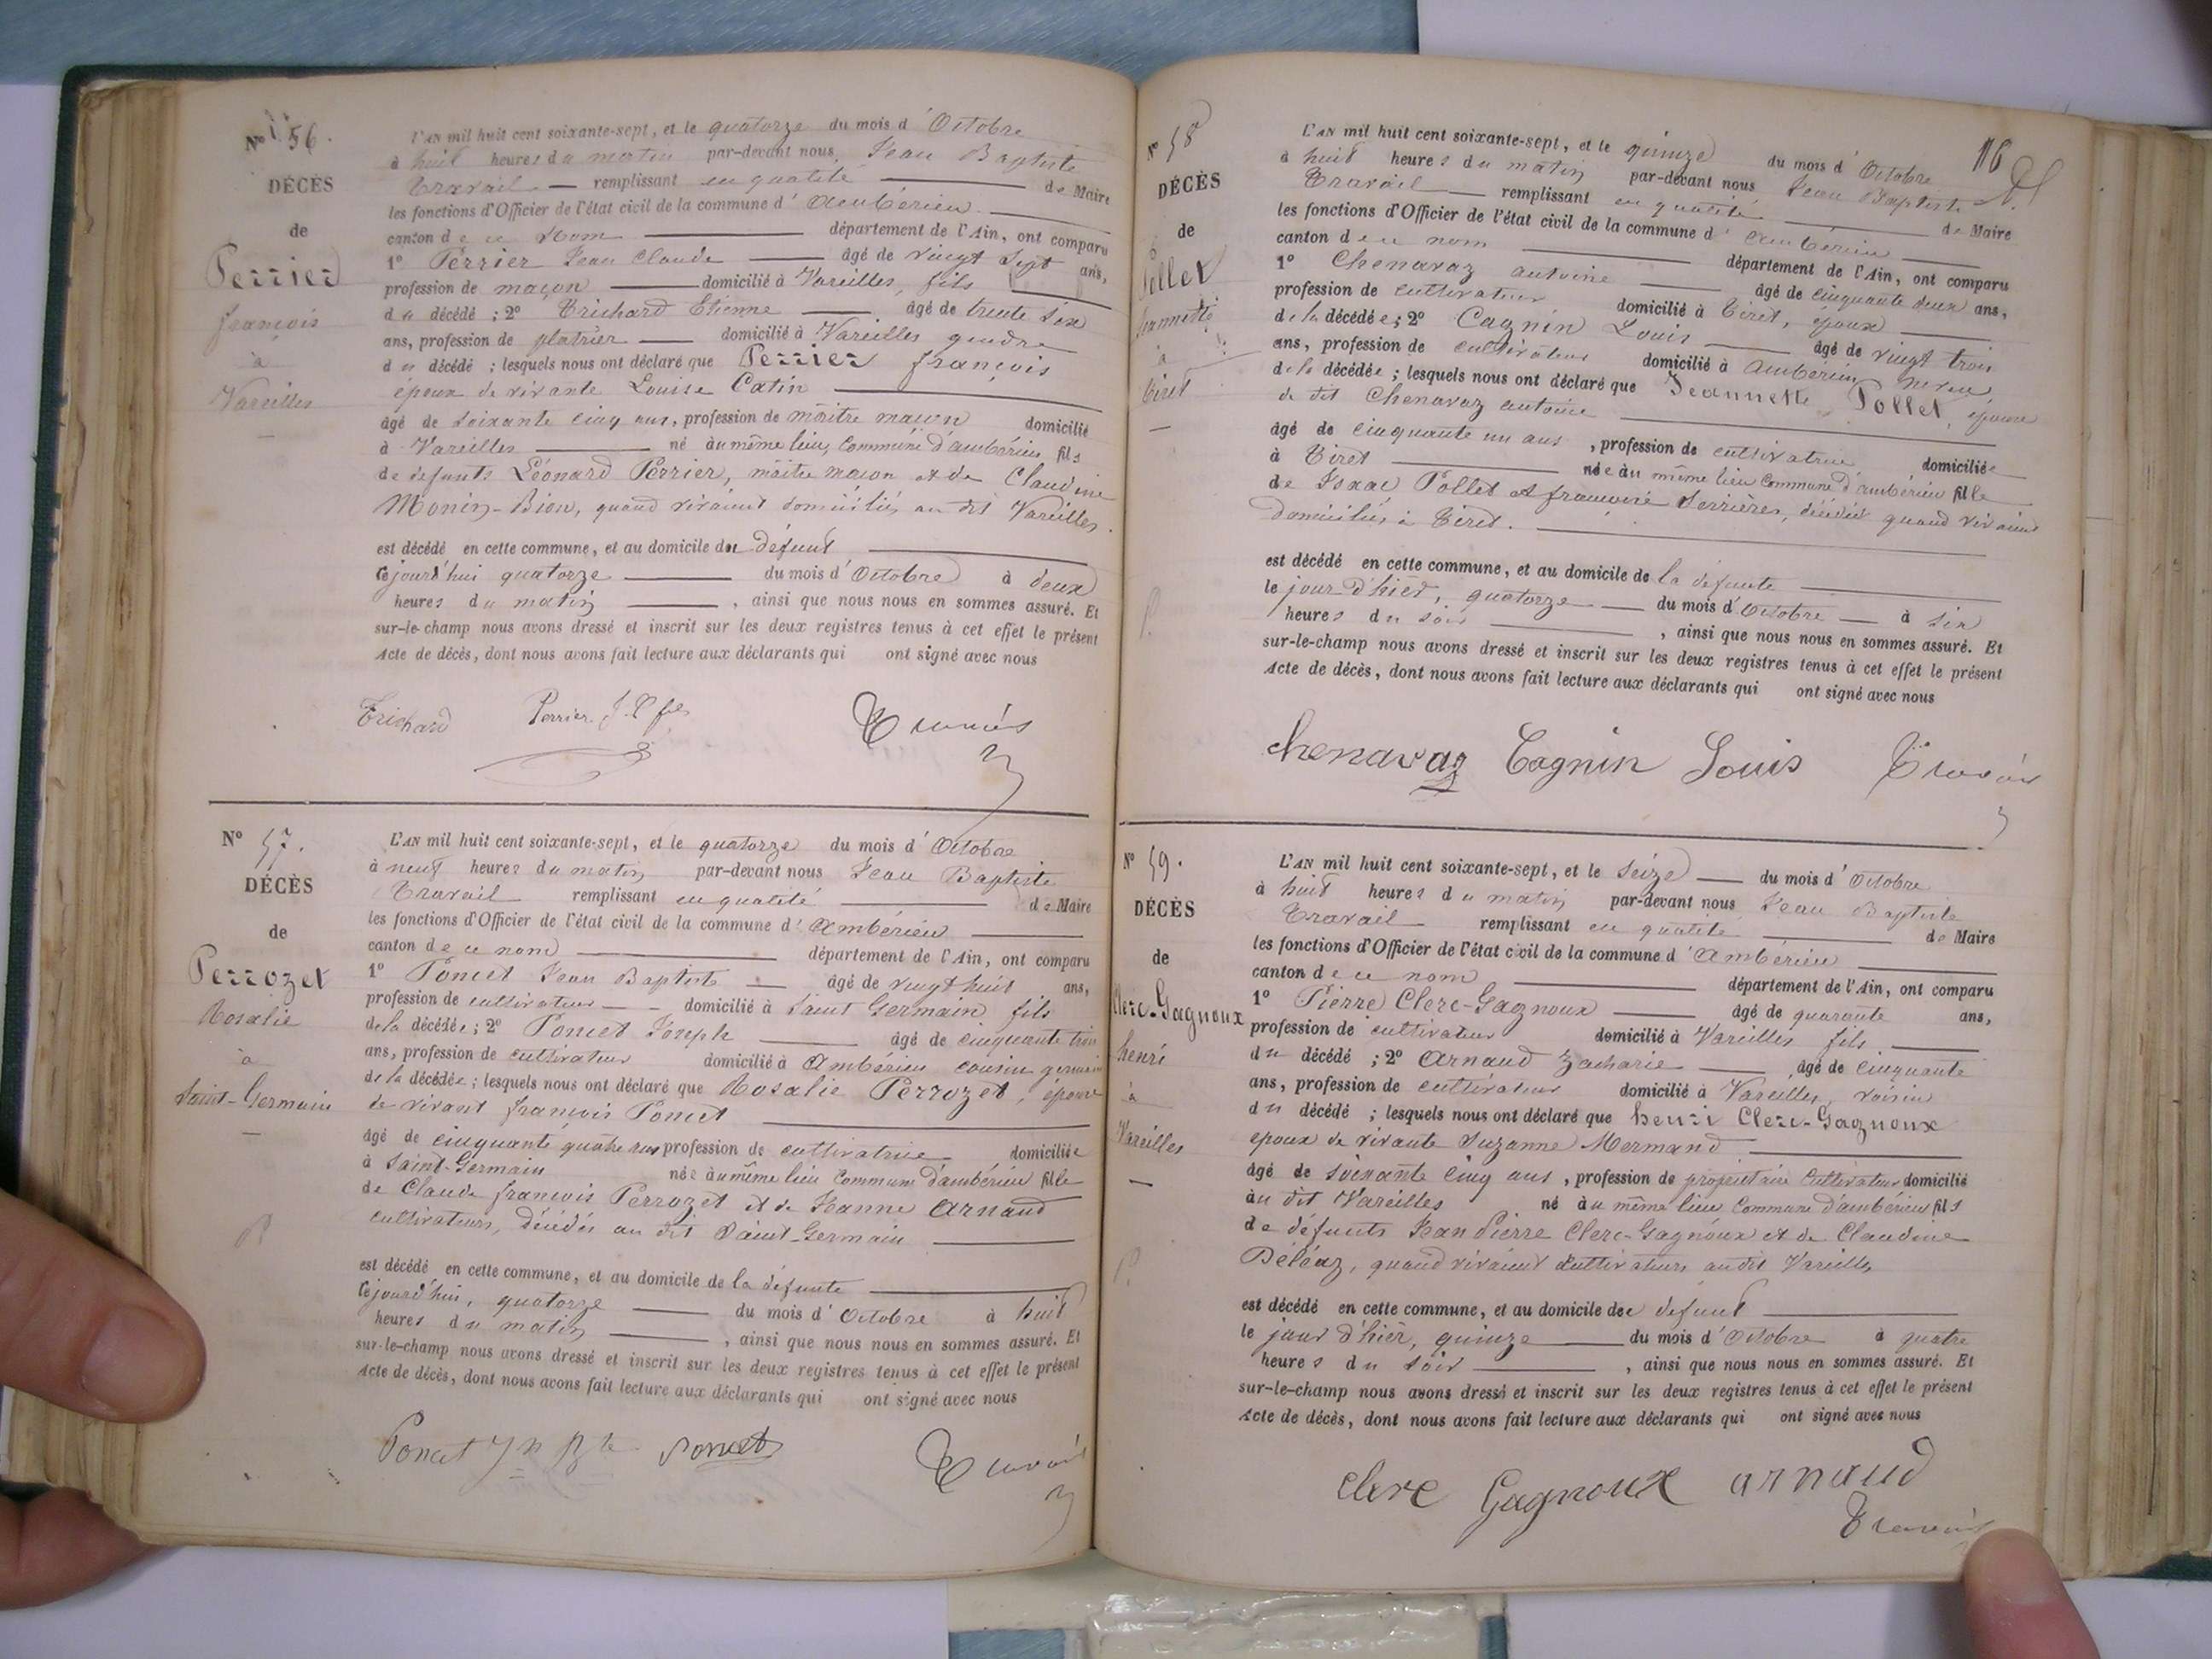 Nº 56.
DÉCÈS
de
Perrier
françois
à
Vareilles
L'AN mil huit cent soixante-sept, et le quatorze du mois d'Octobre
à huit heures du matin par-devant nous, Jean Baptiste
Travail remplissant en qualité de Maire
les fonctions d'Officier de l'état civil de la commune d'Ambérieu
canton de ce nom département de l'Ain, ont comparu
1º Perrier Jean Claude âgé de vingt sept ans,
profession de maçon domicilié à Vareilles, fils
du décédé ; 2º Trichard Etienne âgé de trente six
ans, profession de platrier domicilié à Vareilles gendre
du décédé ; lesquels nous ont déclaré que Perrier françois
époux de vivante Louise Catin
âgé de soixante cinq ans, profession de maitre maçon domicilié
à Vareilles né au même lieu, Commune d'ambérieu fils
de defunts Léonard Perrier, maitre maçon et de Claudine
Monin-Bion, quand vivaient domiciliés au dit Vareilles.
est décédé en cette commune, et au domicile du défunt
cejourd'hui quatorze du mois d'Octobre à deux
heures du matin, ainsi que nous nous en sommes assuré. Et
sur-le-champ nous avons dressé et inscrit sur les deux registres tenus à cet effet le présent
Acte de décès, dont nous avons fait lecture aux déclarants qui ont signé avec nous
Trichard Perrier J. C fils Travail
Nº 57.
DÉCÈS
de
Perrozet
Rosalie
à
Saint-Germain
L'AN mil huit cent soixante-sept, et le quatorze du mois d'Octobre
à neuf heures du matin par-devant nous Jean Baptiste
Travail remplissant en qualité de Maire
les fonctions d'Officier de l'état civil de la commune d'Ambérieu
canton de ce nom département de l'Ain, ont comparu
1º Poncet Jean Baptiste âgé de vingt huit ans,
profession de cultivateur domicilié à Saint Germain fils
de la décédée ; 2º Poncet Joseph âgé de cinquante trois
ans, profession de cultivateur domicilié à Ambérieu cousin germain
de la décédée ; lesquels nous ont déclaré que Rosalie Perrozet, épouse
de vivant françois Poncet
âgé de cinquante quatre ans profession de cultivatrice domiciliée
à Saint-Germain née au même lieu Commune d'ambérieu fille
de Claude françois Perrozet et de Jeanne Arnaud
cultivateurs, décédés au dit Saint-Germain
est décédé en cette commune, et au domicile de la défunte
cejourd'hui, quatorze du mois d'Octobre à huit
heures du matin, ainsi que nous nous en sommes assuré. Et
sur-le-champ nous avons dressé et inscrit sur les deux registres tenus à cet effet le présent
Acte de décès, dont nous avons fait lecture aux déclarants qui ont signé avec nous
Poncet Jn Bte Poncet Travail
16
Nº 58
DÉCÈS
de
Pollet
Jeannette
à
Tiret
L'AN mil huit cent soixante-sept, et le quinze du mois d'Octobre
à huit heures du matin par-devant nous Jean Baptiste
Travail remplissant en qualité de Maire
les fonctions d'Officier de l'état civil de la commune d'ambérieu
canton de ce nom département de l'Ain, ont comparu
1º Chenavaz antoine âgé de cinquante deux ans,
profession de cultivateur domicilié à Tiret, époux
de la décédée ; 2º Cagnin Louis âgé de vingt trois
ans, profession de cultivateur domicilié à Ambérieu neveu
de la décédée ; lesquels nous ont déclaré que Jeannette Pollet, épouse
de dit Chenavaz antoine
âgé de cinquante un ans, profession de cultivatrice domiciliée
à Tiret née au même lieu Commune d'ambérieu fille
de Isaac Pollet et françoise Serrières, décédés quand vivaient
domiciliés à Tiret.
est décédé en cette commune, et au domicile de la défunte
le jour d'hier, quatorze du mois d'Octobre à six
heures du soir, ainsi que nous nous en sommes assuré. Et
sur-le-champ nous avons dressé et inscrit sur les deux registres tenus à cet effet le présent
Acte de décès, dont nous avons fait lecture aux déclarants qui ont signé avec nous
chenavaz Cagnin Louis Travail
Nº 59.
DÉCÈS
de
Clerc-Gagnoux
henri
à
Vareilles
L'AN mil huit cent soixante-sept, et le seize du mois d'Octobre
à huit heures du matin par-devant nous Jean Baptiste
Travail remplissant en qualité de Maire
les fonctions d'Officier de l'état civil de la commune d'Ambérieu
canton de ce nom département de l'Ain, ont comparu
1º Pierre Clerc-Gagnoux âgé de quarante ans,
profession de cultivateur domicilié à Vareilles fils
du décédé ; 2º Arnaud Zacharie âgé de cinquante
ans, profession de cultivateur domicilié à Vareilles, voisin
du décédé ; lesquels nous ont déclaré que henri Clerc-Gagnoux
époux de vivante Suzanne Mermand
âgé de soixante cinq ans, profession de propriétaire cultivateur domicilié
au dit Vareilles né au même lieu Commune d'ambérieu fils
de défunts Jean Pierre Clerc-Gagnoux et de Claudine
Béléaz, quand vivaient cultivateurs au dit Vareilles
est décédé en cette commune, et au domicile de defunt
le jour d'hier, quinze du mois d'Octobre à quatre
heures du soir, ainsi que nous nous en sommes assuré. Et
sur-le-champ nous avons dressé et inscrit sur les deux registres tenus à cet effet le présent
Acte de décès, dont nous avons fait lecture aux déclarants qui ont signé avec nous
clerc Gagnoux arnaud
Travail